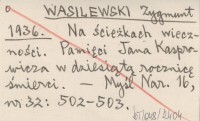 WASILEWSKI Zygmunt
1936. Na ścieżkach wiecz-
ności. Pamięci Jana Kaspro-
wicza w dziesiątą rocznicę
śmierci. — Myśl Nar. 16,
nr 32: 502-503.